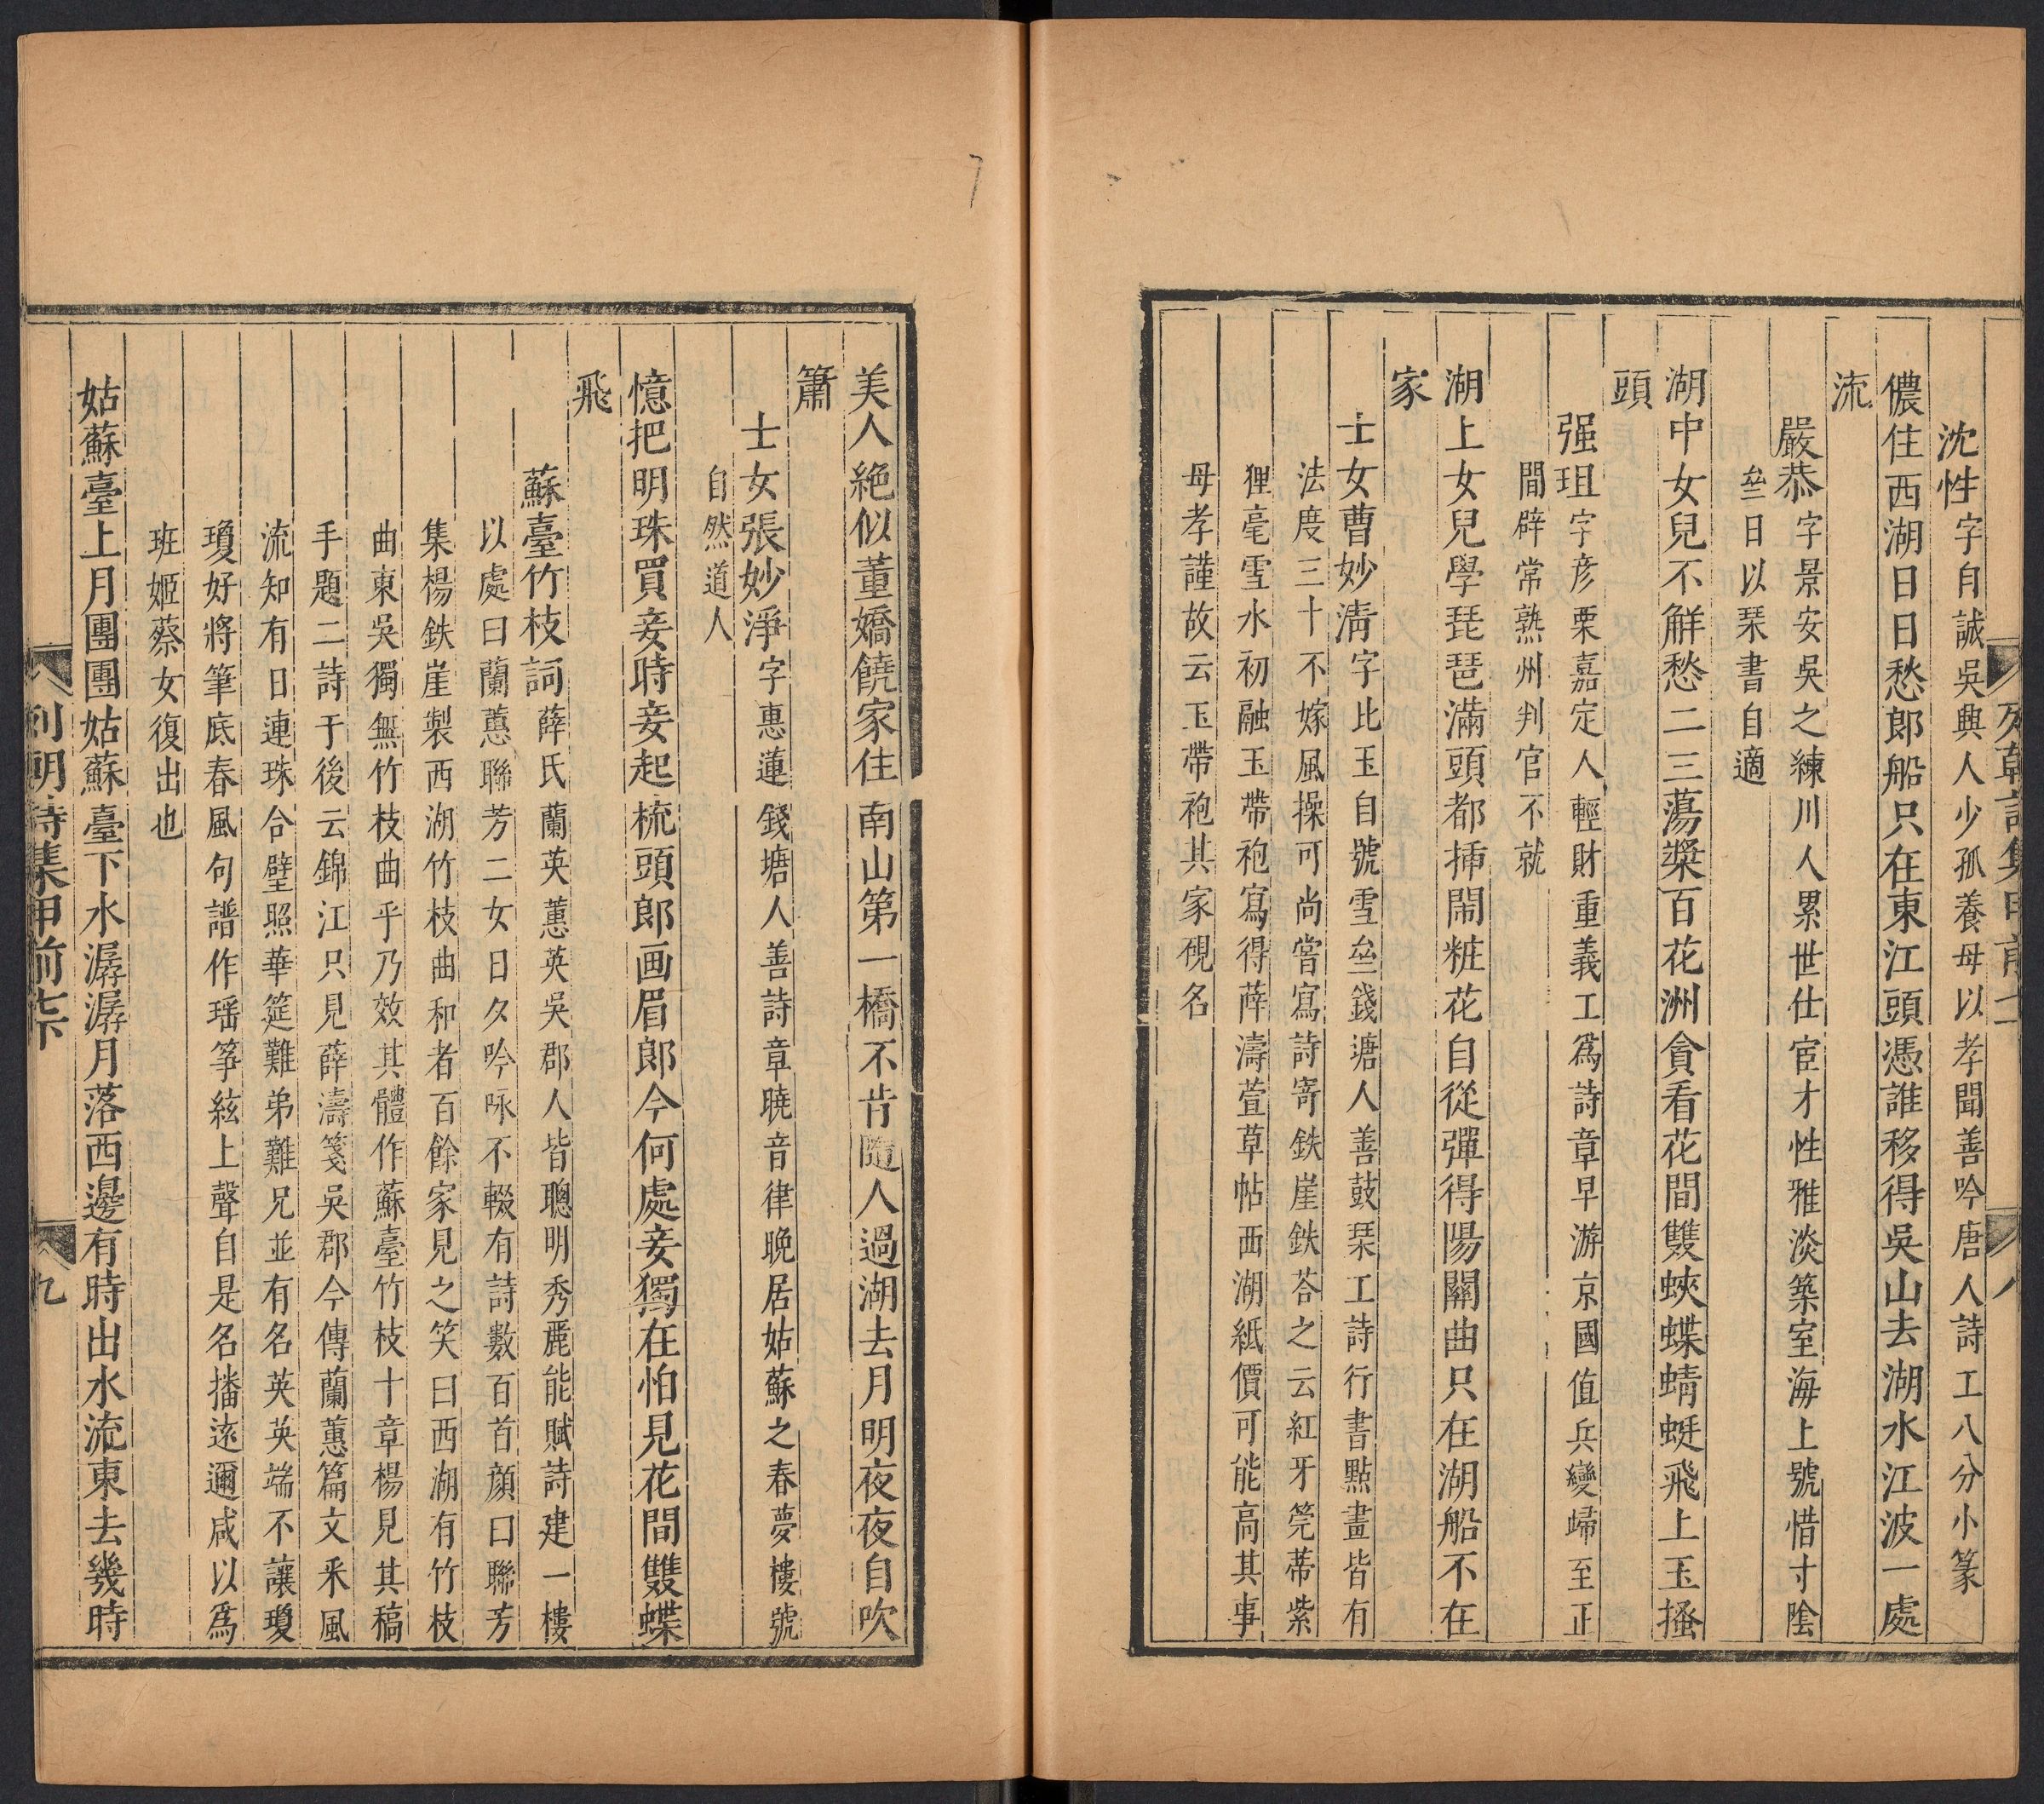 列朝詩集甲前七 八
沈性字自誠吳興人少孤養母以孝聞善吟唐人詩工八分小篆
儂住西湖日日愁郎船只在東江頭憑誰移得吳山去湖水江波一處
流
嚴恭字景安吳之練川人累世仕宦才性雅淡築室海上號惜寸陰
垒日以琹書自適
湖中女兒不觧愁二三蕩槳百花洲貪看花間雙蛺蝶蜻蜓飛上玉搔
頭
强珇字彥栗嘉定人輕財重義工爲詩章早游京國值兵變歸至正
間辟常熟州判官不就
湖上女兒學琵琶滿頭都揷閙粧花自從彈得陽關曲只在湖船不在
家
士女曹妙清字比玉自號雪垒錢塘人善鼓琹工詩行書點畫皆有
法度三十不嫁風操可尚嘗寫詩寄鉄崖鉄荅之云紅牙筦蒂紫
狸毫雪水初融玉帶袍寫得薛濤萱草帖西湖紙價可能高其事
母孝謹故云玉帶袍其家硯名
美人絶似董嬌饒家住南山第一橋不肯隨人過湖去月明夜夜自吹
簫
士女張妙淨字惠蓮錢塘人善詩章曉音律晚居姑蘇之春夢樓號
自然道人
憶把明珠買妾時妾起梳頭郎画眉郎今何處妾獨在怕見花間雙蝶
飛
蘇臺竹枝詞薛氏蘭英蕙英吳郡人皆聰明秀麗能賦詩建一樓
以處曰蘭蕙聯芳二女日夕吟咏不輟有詩數百首顏曰聯芳
集楊鉄崖製西湖竹枝曲和者百餘家見之笑曰西湖有竹枝
曲東吳獨無竹枝曲乎乃效其體作蘇臺竹枝十章楊見其稿
手題二詩于後云錦江只見薛濤箋吳郡今傳蘭蕙篇文采風
流知有日連珠合璧照華筵難弟難兄並有名英英端不讓瓊
瓊好將筆底春風句譜作瑶筝絃上聲自是名播遠邇咸以爲
班姬蔡女復出也
姑蘇臺上月團團姑蘇臺下水潺潺月落西邊有時出水流東去幾時
列朝詩集甲前七下 九